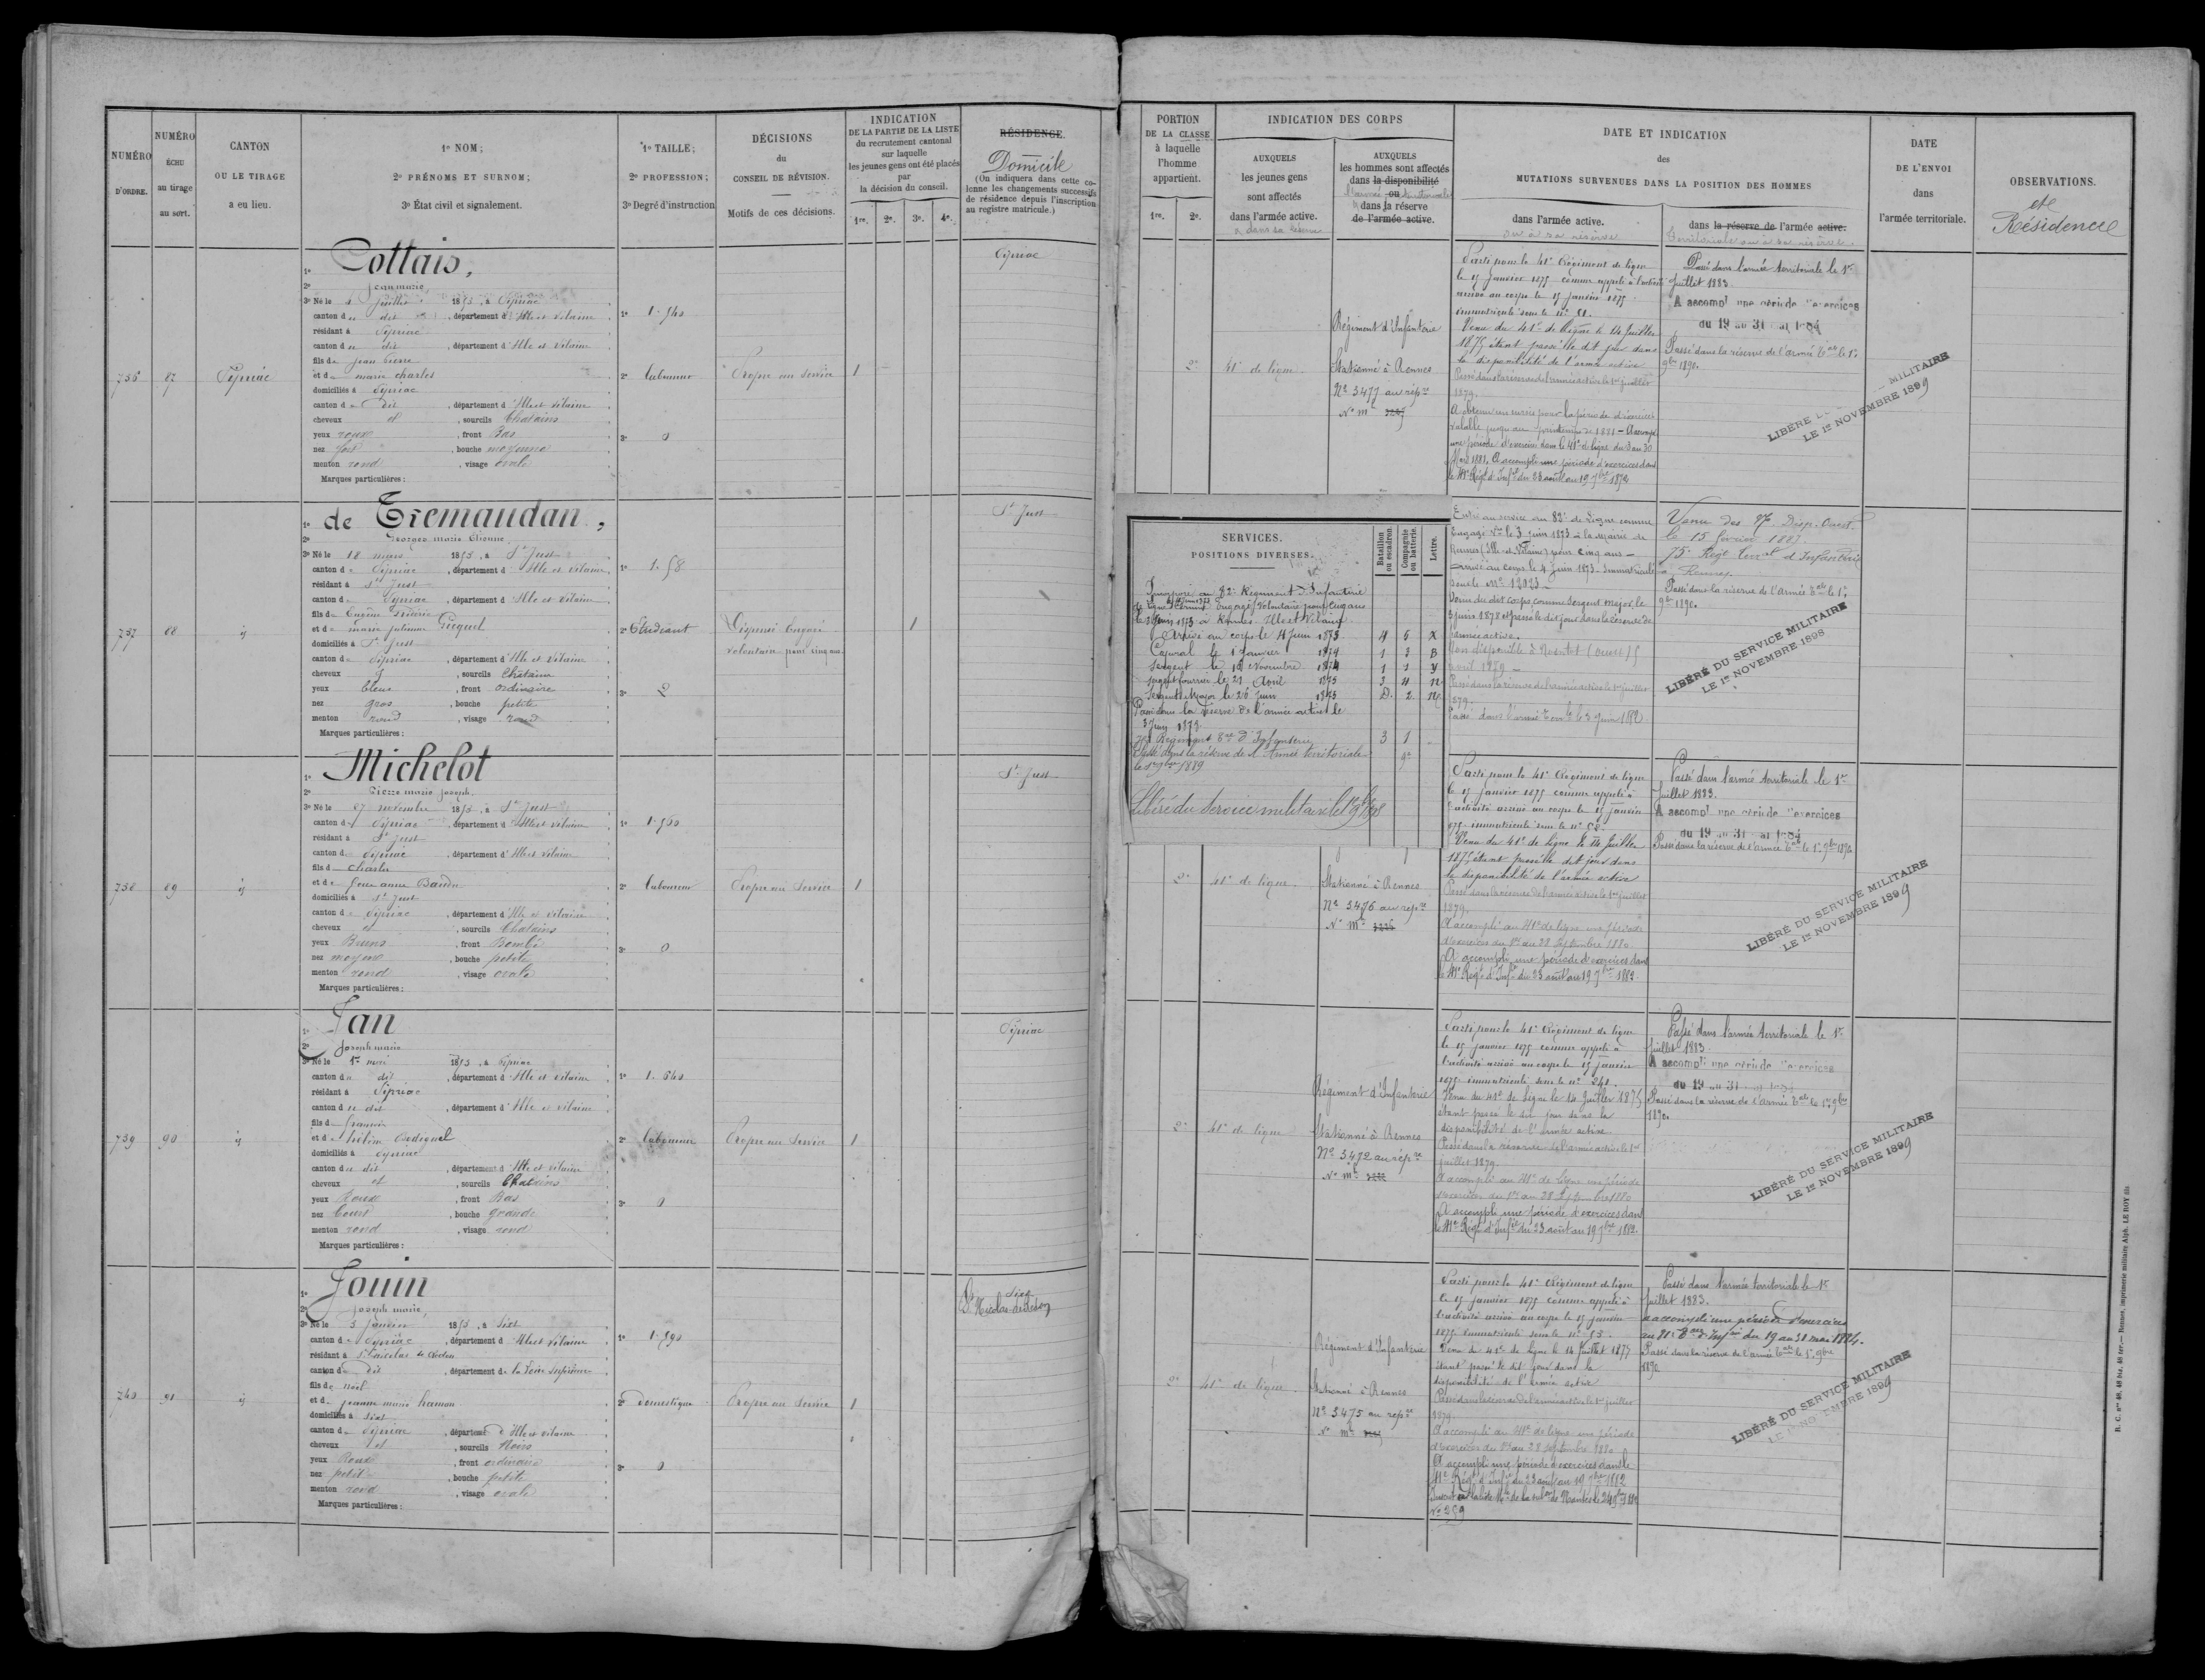 NUMÉRO D'ORDRE.
NUMÉRO ÉCHU au tirage au sort.
CANTON OU LE TIRAGE a eu lieu.
1º NOM;
2º PRÉNOMS ET SURNOM;
3º État civil et signalement.
1º TAILLE;
2º PROFESSION;
3º Degré d'instruction
DÉCISIONS
du
CONSEIL DE RÉVISION.
Motifs de ces décisions.
INDICATION
DE LA PARTIE DE LA LISTE
du recrutement cantonal
sur laquelle
les jeunes gens ont été placés
par
la décision du conseil.
1re. 2e. 3e. 4e.
RÉSIDENCE.
Domicile
(On indiquera dans cette co-
lonne les changements successifs
de résidence depuis l'inscription
au registre matricule.)
736
87
Pipriac
1º Cottais,
2º Jean marie
3º Né le 4 Juillet 1853, à Pipriac
canton du dit, département d'Ille et Vilaine
résidant à Pipriac
canton du dit, département d'Ille et Vilaine
fils de Jean Pierre
et de marie charles
domiciliés à Pipriac
canton du dit, département d'Ille et Vilaine
cheveux et, sourcils Chatains
yeux roux, front Bas
nez fort, bouche moyenne
menton rond, visage ovale
Marques particulières :
1º 1.540
2º laboureur
3º 0
Propre au service
1
Pipriac
737
88
id
1º de Tremaudan,
2º Georges marie Etienne
3º Né le 18 mars 1853, à St Just
canton de Pipriac, département d'Ille et Vilaine
résidant à St Just
canton de Pipriac, département d'Ille et Vilaine
fils de Eugène Frédéric
et de marie Picquel
domiciliés à St Just
canton de Pipriac, département d'Ille et Vilaine
cheveux et, sourcils Châtains
yeux bleus, front ordinaire
nez gros, bouche petite
menton rond, visage rond
Marques particulières :
1º 1.58
2º Etudiant
3º 2
Dispensé Engagé
volontaire pour cinq ans
1
St Just
738
89
id
1º Michelot
2º Pierre marie Joseph
3º Né le 27 novembre 1853, à St Just
canton de Pipriac, département d'Ille et Vilaine
résidant à St Just
canton de Pipriac, département d'Ille et Vilaine
fils de Charles
et de Jeanne Baudu
domiciliés à St Just
canton de Pipriac, département d'Ille et Vilaine
cheveux et, sourcils Chatains
yeux Bruns, front Bombé
nez moyen, bouche petite
menton rond, visage ovale
Marques particulières :
1º 1.560
2º laboureur
3º 0
Propre au Service
1
St Just
739
90
id
1º Jan
2º Joseph marie
3º Né le 1er mai 1853, à Pipriac
canton du dit, département d'Ille et Vilaine
résidant à Pipriac
canton du dit, département d'Ille et Vilaine
fils de François
et de hélène
domiciliés à Pipriac
canton du dit, département d'Ille et Vilaine
cheveux et, sourcils Chatains
yeux Roux, front Bas
nez Court, bouche grande
menton rond, visage rond
Marques particulières :
1º 1.640
2º laboureur
3º 0
Propre au Service
1
Pipriac
740
91
id
1º Jouin
2º Joseph marie
3º Né le 3 Janvier 1853, à Sixt
canton de Pipriac, département d'Ille et Vilaine
résidant à St Nicolas de Redon
canton du dit, département de la Loire Inférieure
fils de Noël
et de jeanne marie hamon
domiciliés à Sixt
canton de Pipriac, département d'Ille et Vilaine
cheveux et, sourcils Noirs
yeux Roux, front ordinaire
nez petit, bouche petite
menton rond, visage ovale
Marques particulières :
1º 1.590
2º domestique
3º 0
Propre au Service
1
Sixt
St Nicolas de Redon
PORTION
DE LA CLASSE
à laquelle
l'homme
appartient.
1re. 2e.
INDICATION DES CORPS
AUXQUELS
les jeunes gens
sont affectés
dans l'armée active.
& dans sa réserve
AUXQUELS
les hommes sont affectés
dans la disponibilité
ou
dans la réserve
de l'armée active.
DATE ET INDICATION
des
MUTATIONS SURVENUES DANS LA POSITION DES HOMMES
dans l'armée active.
ou à sa réserve
dans la réserve de l'armée active.
Territoriale ou à sa réserve.
DATE
DE L'ENVOI
dans
l'armée territoriale.
OBSERVATIONS.
et
Résidence
2e
41e de ligne
Régiment d'Infanterie
Stationné à Rennes
Nº 3477 au répre
Nº me
Parti pour le 41e Régiment de ligne
le 15 Janvier 1875 comme appelé à l'activité
arrivé au corps le 15 Janvier 1875
immatriculé sous le nº 51.
Venu du 41e de Ligne le 14 Juillet
1875 étant passé le dit jour dans
la disponibilité de l'armée active
Passé dans la réserve de l'armée active le 1er juillet
1879.
A obtenu un sursis pour la période d'exercices
valable jusqu'au printemps de 1881 - A accompli
une période d'exercices dans le 41e de ligne du 3 au 30
Mars 1881. A accompli une période d'exercices dans
le 41e Régt d'Infie du 23 août au 19 7bre 1882
Passé dans l'armée territoriale le 1er
Juillet 1883.
A accompli une période d'exercices
du 19 au 31 mai 1884
Passé dans la réserve de l'armée tale le 1er
9bre 1890.
LIBÉRÉ DU SERVICE MILITAIRE
LE 1er NOVEMBRE 1899
SERVICES.
POSITIONS DIVERSES.
Bataillon ou escadron.
Compagnie ou batterie.
Lettre.
Incorporé au 82e Régiment d'Infanterie
de ligne comme Engagé Volontaire pour cinq ans
le 3 Juin 1873 à Rennes Ille et Vilaine
Arrivé au corps le 4 Juin 1873. 4 6 X
Caporal le 1er Janvier 1874 1 3 B
Sergent le 16 Novembre 1874 1 1 Y
Sergent fourrier le 21 Avril 1875 3 4 N
Sergent Major le 26 Juin 1875 D. 2 N
Passé dans la réserve de l'armée active le
3 Juin 1878.
75e Régiment Tal d'Infanterie 3 1
Passé dans la réserve de l'Armée territoriale
le 1er 9bre 1889
Libéré du Service militaire le 1er 9bre 1898
Entré au service au 82e de Ligne comme
Engagé Vre le 3 juin 1873 à la Mairie de
Rennes (Ille et Vilaine) pour cinq ans -
Arrivé au corps le 4 Juin 1873 - Immatriculé
sous le Nº 12023 -
Venu du dit corps comme Sergent Major, le
3 juin 1878 et passé le dit jour dans la réserve de
l'armée active.
Non disponible
Passé dans la réserve de l'armée active le 1er juillet
1879.
Passé dans l'armée terrle le 3 juin 1882
Venu des Disp. Ouest
le 15 février 1887
75e Régt Terral d'Infanterie
à Rennes.
Passé dans la réserve de l'armée tale le 1er
9bre 1890.
LIBÉRÉ DU SERVICE MILITAIRE
LE 1er NOVEMBRE 1898
2e
41e de ligne
Stationné à Rennes
Nº 3476 au répre
Nº me
Parti pour le 41e Régiment de ligne
le 15 Janvier 1875 comme appelé à
l'activité arrivé au corps le 15 Janvier
1875 immatriculé sous le nº 52.
Venu du 41e de ligne le 14 Juillet
1875 étant passé le dit jour dans
la disponibilité de l'armée active
Passé dans la réserve de l'armée active le 1er juillet
1879.
A accompli au 41e de ligne une période
d'exercices du 1er au 28 Septembre 1880
A accompli une période d'exercices dans
le 41e Régt d'Infie du 23 août au 19 7bre 1882.
Passé dans l'armée territoriale le 1er
Juillet 1883.
A accompli une période d'exercices
du 19 au 31 mai 1884
Passé dans la réserve de l'armée tale le 1er 9bre 1890
LIBÉRÉ DU SERVICE MILITAIRE
LE 1er NOVEMBRE 1899
2e
41e de ligne
Régiment d'Infanterie
Stationné à Rennes
Nº 3472 au répre
Nº me
Parti pour le 41e Régiment de ligne
le 15 janvier 1875 comme appelé à
l'activité arrivé au corps le 15 janvier
1875 immatriculé sous le nº 241.
Venu du 41e de Ligne le 14 Juillet 1875
étant passé le dit jour dans la
disponibilité de l'armée active
Passé dans la réserve de l'armée active le 1er
juillet 1879.
A accompli au 41e de Ligne une période
d'exercices du 1er au 28 Septembre 1880
A accompli une période d'exercices dans
le 41e Régt d'Infie du 23 août au 19 7bre 1882.
Passé dans l'armée territoriale le 1er
Juillet 1883
A accompli une période d'exercices
du 19 au 31
Passé dans la réserve de l'armée tale le 1er 9bre
1890
LIBÉRÉ DU SERVICE MILITAIRE
LE 1er NOVEMBRE 1899
2e
41e de ligne
Régiment d'Infanterie
Stationné à Rennes
Nº 3475 au répre
Nº me
Parti pour le 41e Régiment de ligne
le 15 janvier 1875 comme appelé à
l'activité arrivé au corps le 15 janvier
1875 immatriculé sous le nº 53.
Venu du 41e de Ligne le 14 Juillet 1875
étant passé le dit jour dans la
disponibilité de l'armée active
Passé dans la réserve de l'armée active le 1er juillet
1879.
A accompli au 41e de ligne une période
d'exercices du 1er au 28 septembre 1880
A accompli une période d'exercices dans le
41e Régt d'Infie du 23 août au 19 7bre 1882
Nº 259
Passé dans l'armée territoriale le 1er
Juillet 1883.
a accompli une période d'exercices
du 19 au 31 mai 1884.
Passé dans la réserve de l'armée tale le 1er 9bre
1890
LIBÉRÉ DU SERVICE MILITAIRE
LE 1er NOVEMBRE 1899
R. C. nos 40, 48 bis, 48 ter.— Rennes, imprimerie militaire Alph. LE ROY fils